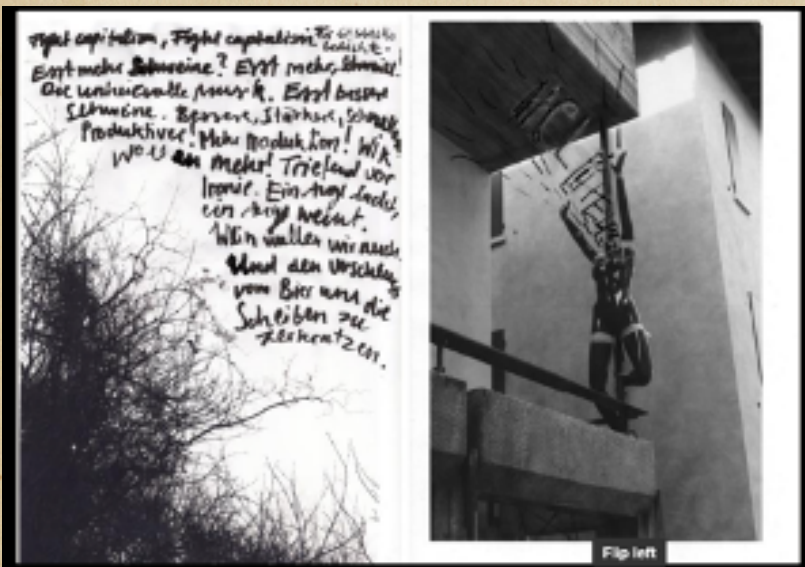 Fight capitalism, Fight capitalism
Esst mehr Schweine? Esst mehr,
Die universelle Musik. Esst bessere
Schweine. Bessere, Stärkere,
Produktiver! Mehr Produktion! Wir
wollen mehr! Triefend vor
Ironie. Ein Auge lacht,
ein Auge weint.
Wein wollen wir auch.
Und den
vom Bier und die
Scheiben zu
zerkratzen.
Flip left